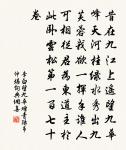 昔在九江上遥望九華
峰天河挂绿水秀出九
芙蓉我欲一揮手誰人
可相從君為東道主於
此卧雲松 一百七十
卷
李白望九華贈青陽韋
仲堪